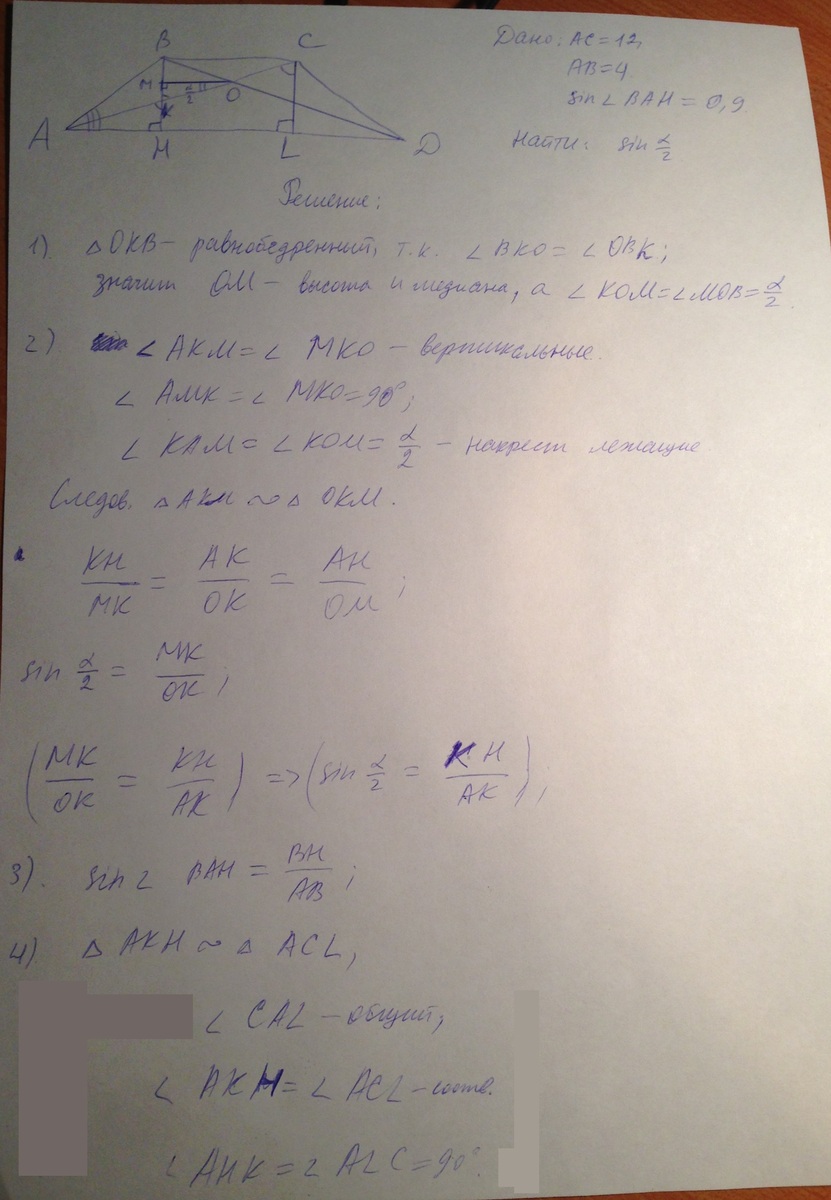 B C
M
α/2
O
K
A
H L D
Дано: AC=12,
AB=4
sin∠BAH = 0,9
Найти: sin α/2
Решение:
1) △OKB – равнобедренний, т.к. ∠BKO = ∠OBK;
значит OM – высота и медиана, а ∠KOM=∠MOB=α/2
2) ∠AKM=∠ MKO – вертикальные.
∠ AMK = ∠ MKO=90°;
∠ KAM = ∠ KOM= α/2 – накрест лежащие
Следов. △ AKM ~ △ OKM.
KH/MK = AK/OK = AH/OM;
sin α/2 = MK/OK;
(MK/OK = KH/AK) => (sin α/2 = KH/AK);
3). sin∠ BAH = BH/AB;
4) △ AKH ~ △ ACL,
∠ CAL – общий;
∠ AKH = ∠ ACL – соотв.
∠ AHK = ∠ ALC = 90°.